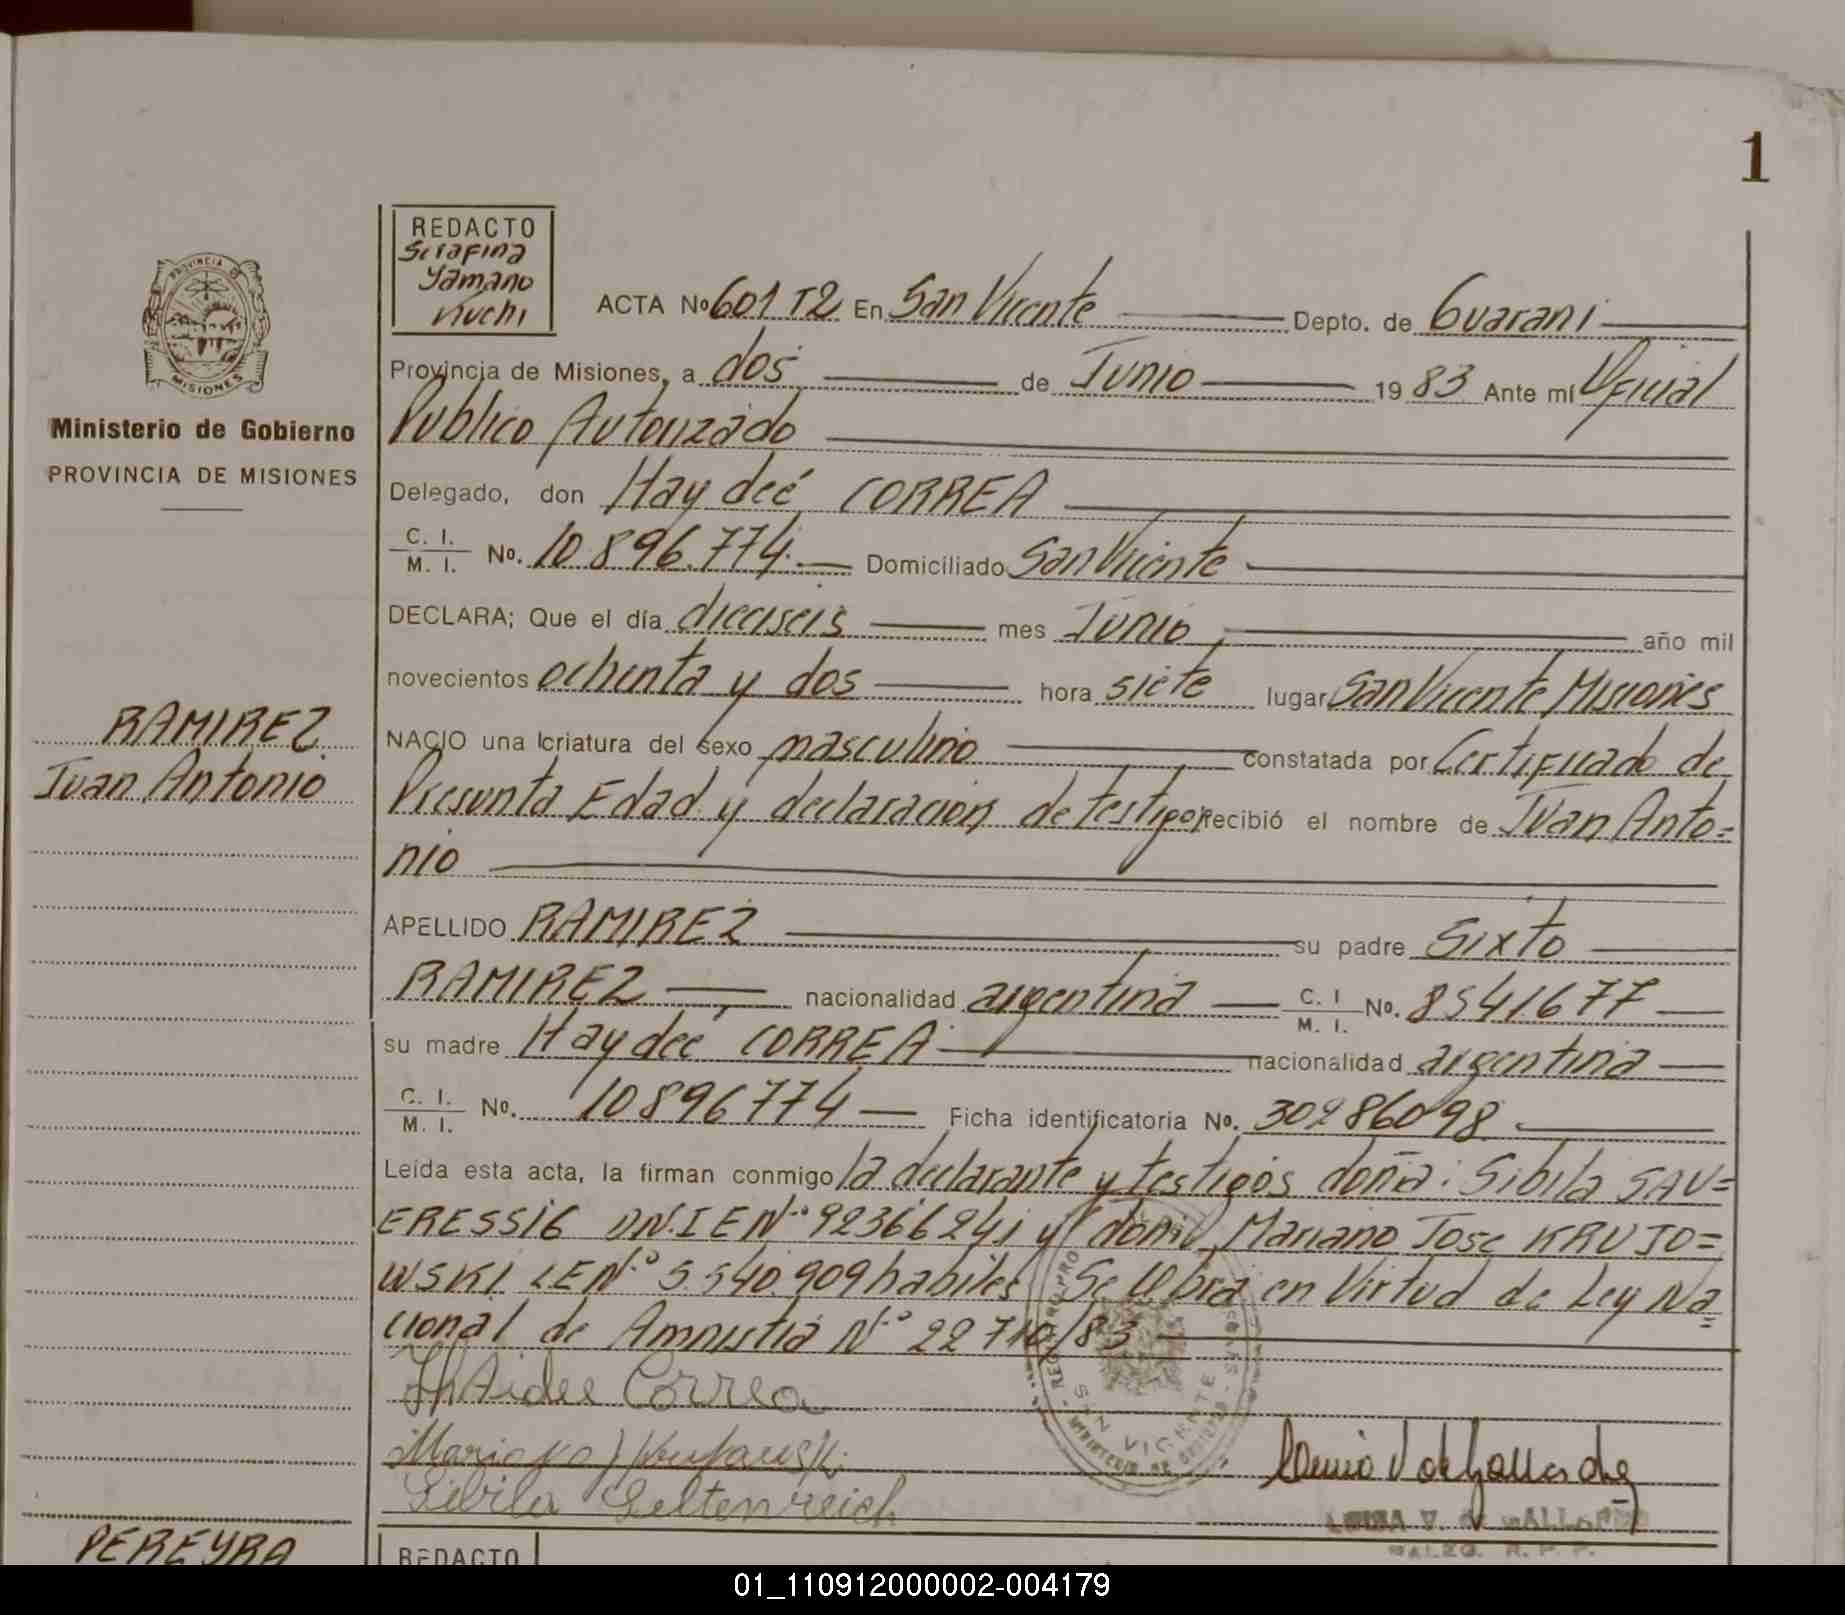 1
REDACTO
Serafina
Yamano
Kuchi
PROVINCIA DE
MISIONES
Ministerio de Gobierno
PROVINCIA DE MISIONES
ACTA No 601 T2 En San Vicente Depto. de Guarani
Provincia de Misiones, a dos de Junio 1983 Ante mi Oficial
Publico Autorizado
Delegado, don Haydeé CORREA
C. I.
M. I. No. 10.896.774.- Domiciliado San Vicente
DECLARA; Que el día dieciseis mes Junio año mil
novecientos ochenta y dos hora siete lugar San Vicente Misiones
RAMIREZ
Juan Antonio
NACIO una criatura del sexo masculino constatada por Certificado de
Presunta Edad y declaracion de testigos recibió el nombre de Juan Anto=
nio
APELLIDO RAMIREZ su padre Sixto
RAMIREZ nacionalidad argentina C. I
M. I. No. 8541677
su madre Haydeé CORREA nacionalidad argentina
C. I.
M. I. No. 10896774 Ficha identificatoria No. 30286098
Leída esta acta, la firman conmigo la declarante y testigos doña: Sibila SAU=
ERESSIG DN.I E Nº 92366241 y don Mariano Jose KRUJO=
WSKI LE Nº 5.540.909 habiles Se labra en Virtud de Ley Na=
cional de Amnistia Nº 22710/83
HAidee Correa
Sibila Seltenreich
SAN VICENTE
MINISTERIO DE GOBIERNO
PEREYRA
REDACTO
01_110912000002-004179